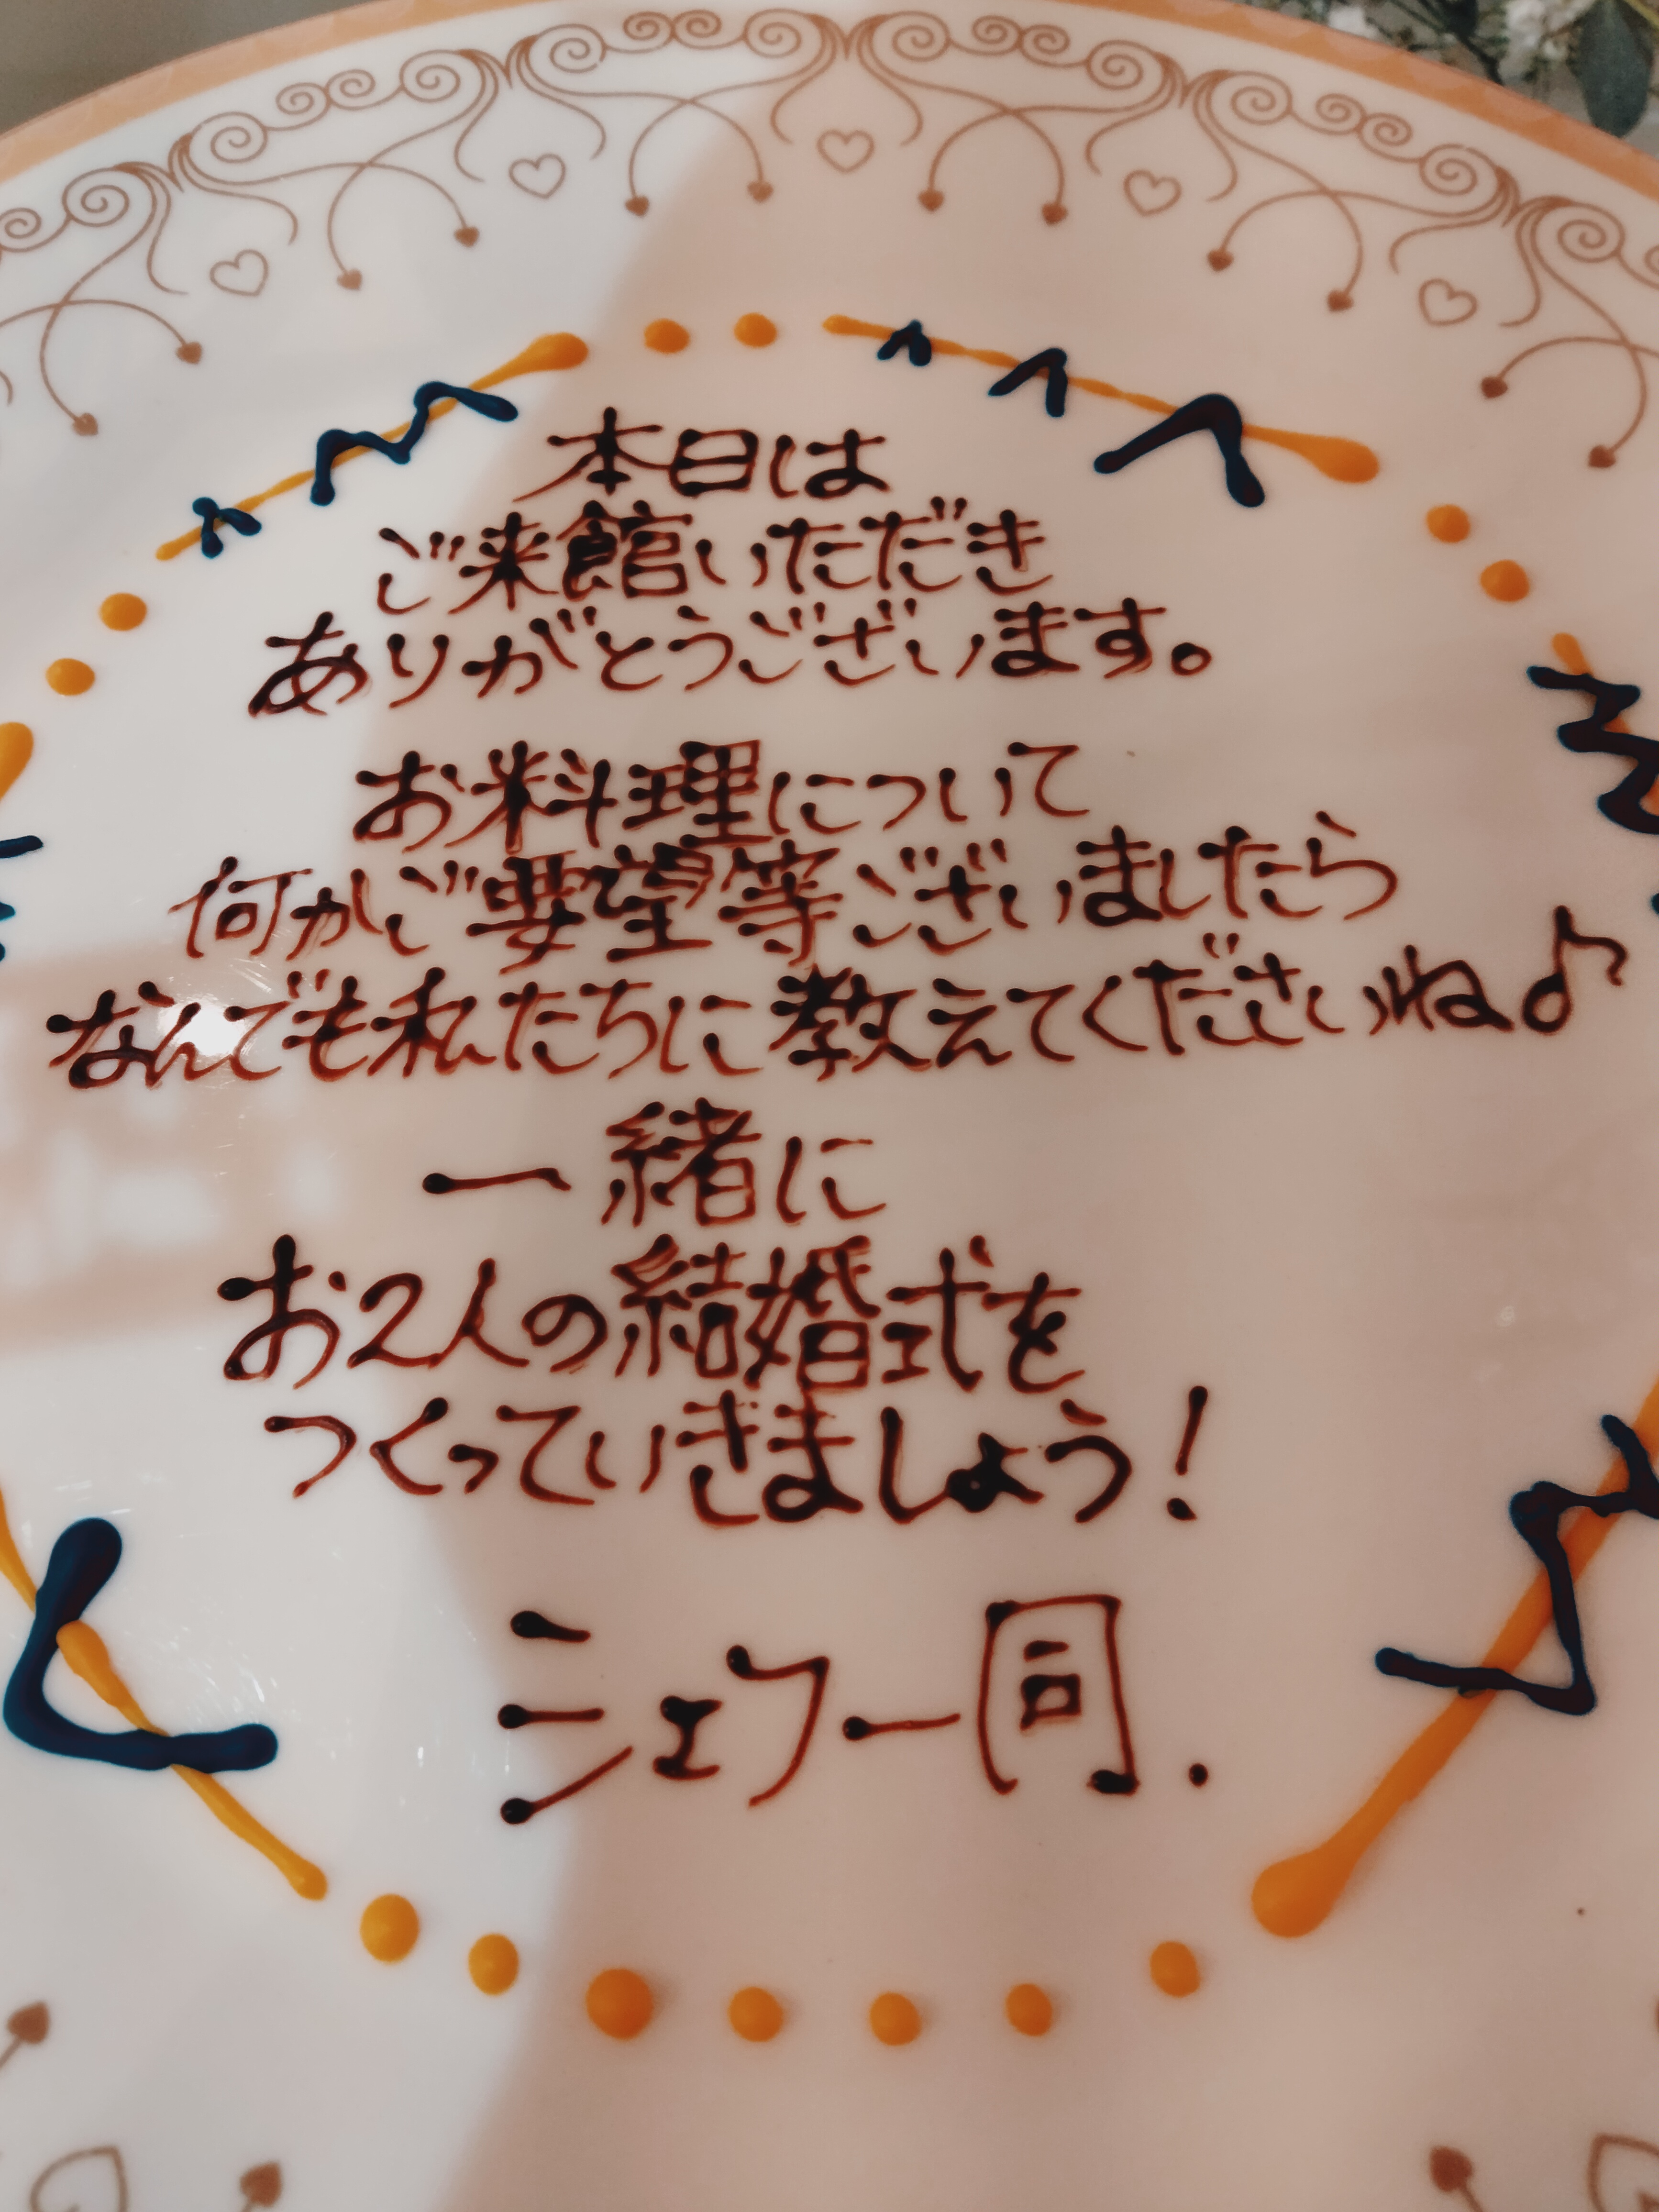 本日は
ご来館いただき
ありがとうございます。
お料理について
何かご要望等ございましたら
なんでも私たちに教えてくださいね♪
一緒に
お2人の結婚式を
つくっていきましょう!
シェフ一同.